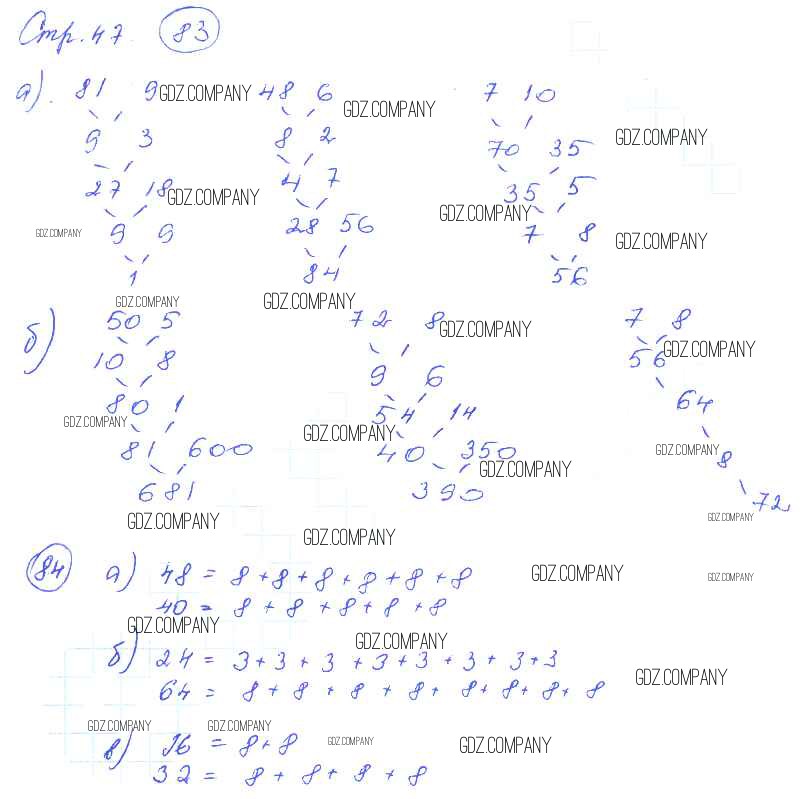 Стр. 47. 83
а). 81 9 GDZ.COMPANY 48 6 GDZ.COMPANY 7 10
9 3 8 2 70 35 GDZ.COMPANY
27 18 GDZ.COMPANY 4 7 35 5
GDZ.COMPANY 9 9 28 56 GDZ.COMPANY 7 8 GDZ.COMPANY
1 84 56
GDZ.COMPANY GDZ.COMPANY
б) 50 5 72 8 GDZ.COMPANY 7 8
10 8 9 6 56 GDZ.COMPANY
80 1 54 14 64
GDZ.COMPANY 81 600 GDZ.COMPANY 40 350 GDZ.COMPANY 8
681 390 GDZ.COMPANY 72
GDZ.COMPANY GDZ.COMPANY GDZ.COMPANY
84 а) 48 = 8 + 8 + 8 + 8 + 8 + 8 GDZ.COMPANY GDZ.COMPANY
40 = 8 + 8 + 8 + 8 + 8
GDZ.COMPANY GDZ.COMPANY
б) 24 = 3 + 3 + 3 + 3 + 3 + 3 + 3 + 3
64 = 8 + 8 + 8 + 8 + 8 + 8 + 8 + 8 GDZ.COMPANY
GDZ.COMPANY GDZ.COMPANY
в) 16 = 8 + 8 GDZ.COMPANY GDZ.COMPANY
32 = 8 + 8 + 8 + 8